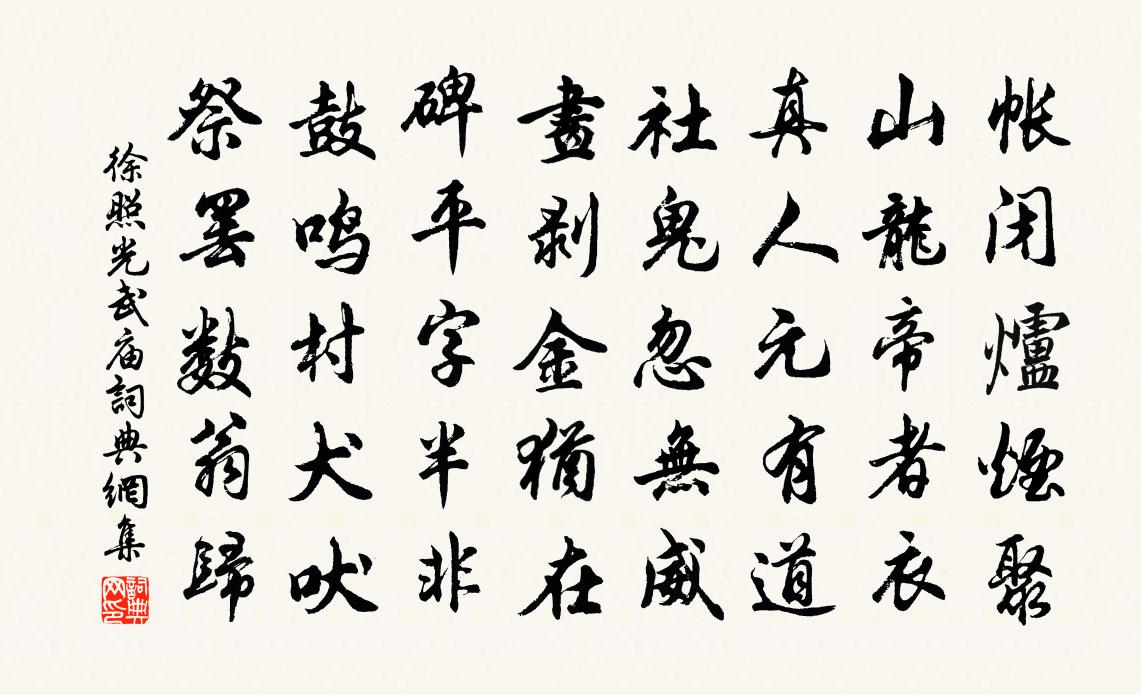 帐闭爐煙聚
山龍帝者衣
真人元有道
社鬼忽無威
畫剥金猶在
碑平字半非
鼓鸣村犬吠
祭罢数翁歸
徐照光武庙詞典網集
詞典网印